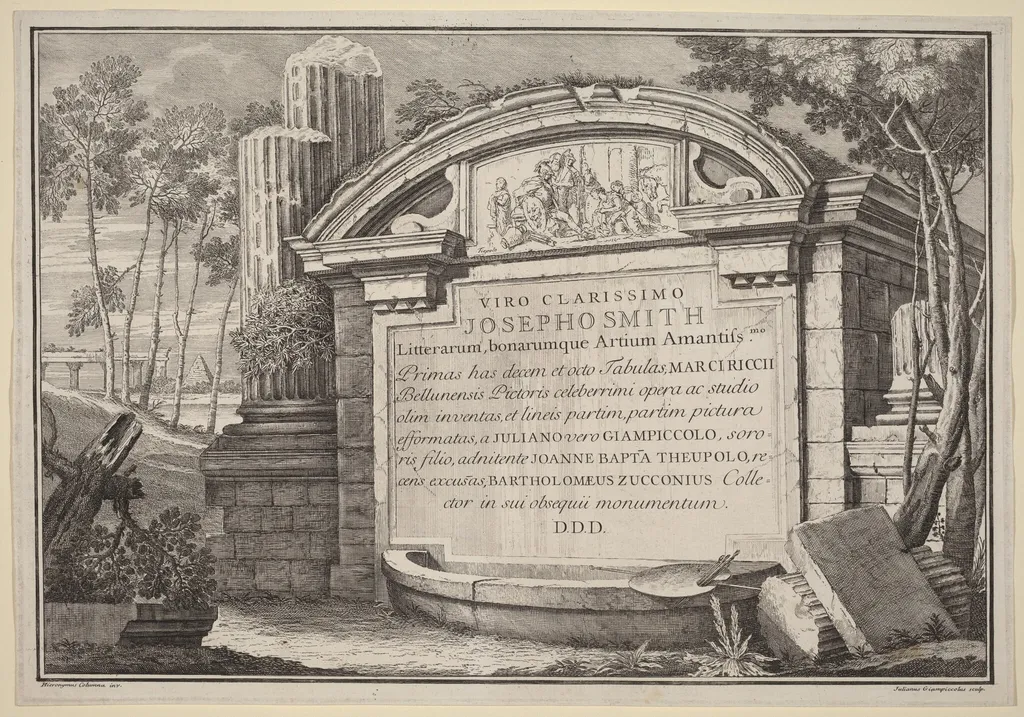 VIRO CLARISSIMO
JOSEPHO SMITH
Litterarum, bonarumque Artium Amantiſs.mo
Primas has decem et octo Tabulas, MARCI RICCII
Bellunensis Pictoris celeberrimi opera ac studio
olim inventas, et lineis partim, partim pictura
efformatas, a JULIANO vero GIAMPICCOLO, soro-
ris filio, adnitente JOANNE BAPTA THEUPOLO, re-
cens excusas, BARTHOLOMEUS ZUCCONIUS Colle-
ctor in sui obsequii monumentum.
D.D.D.
Hieronymus Columna inv.
Julianus Giampiccolus sculp.